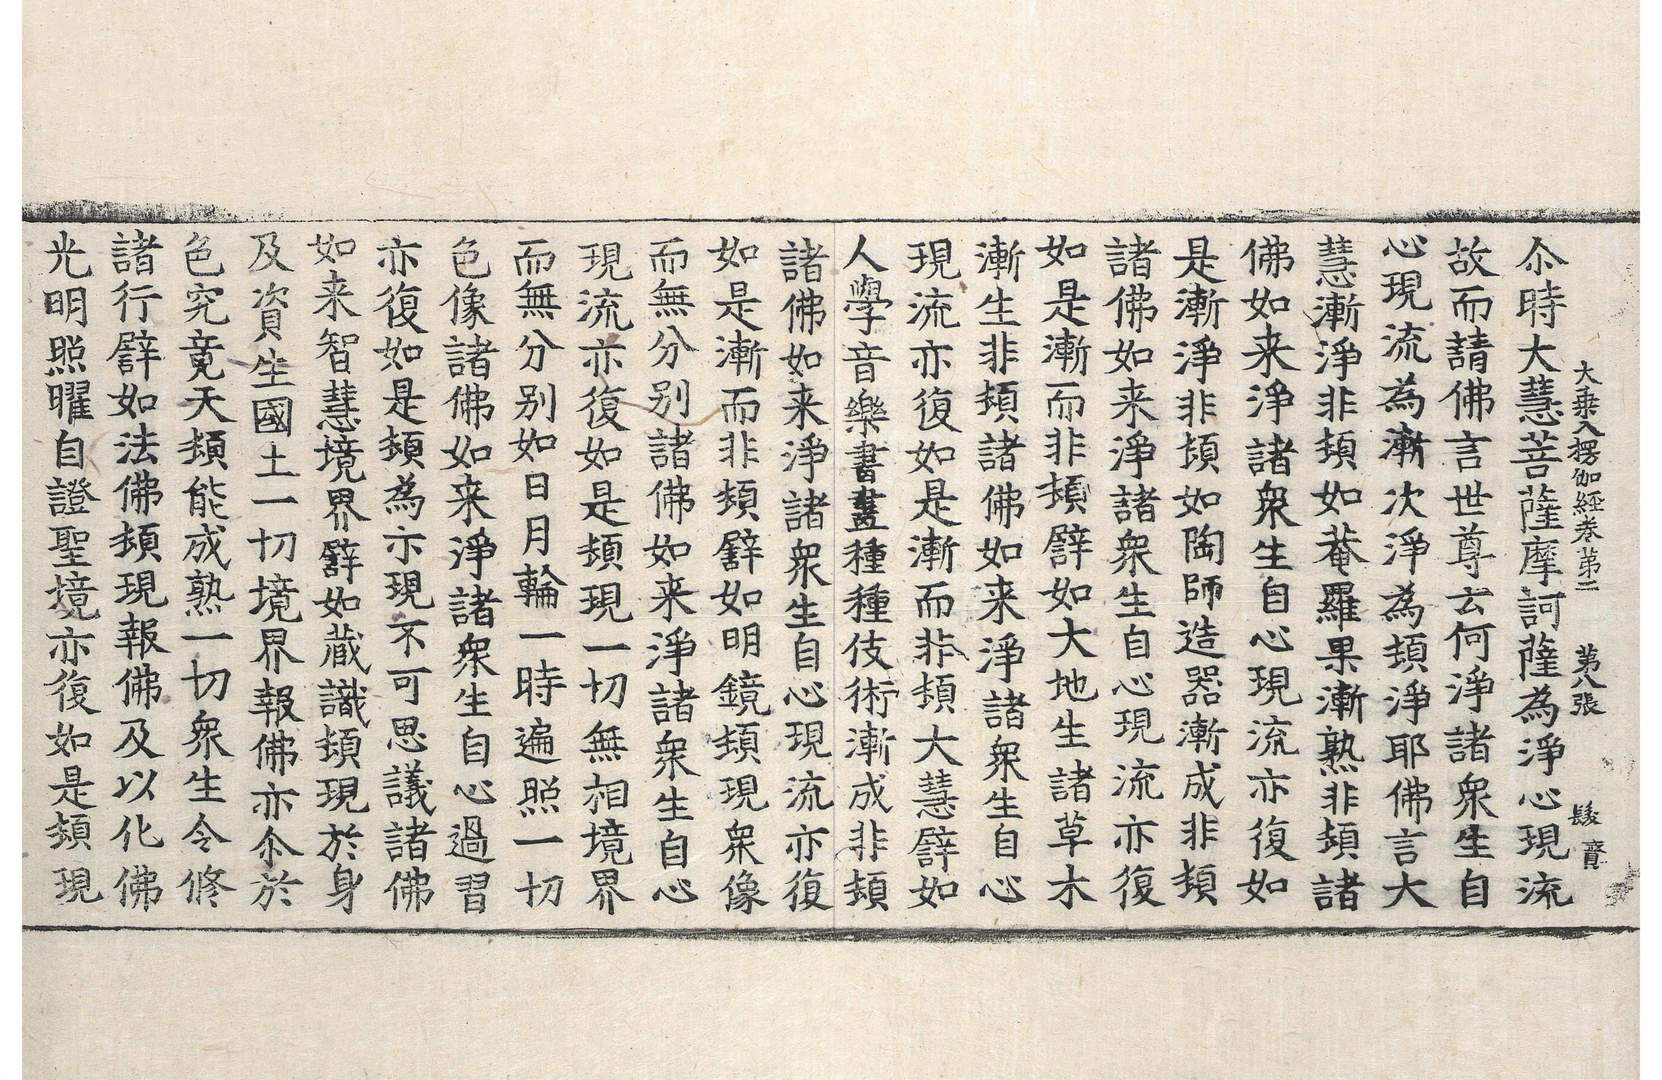 大乗入楞伽經卷第二 第八張 髮
尒時大慧菩薩摩訶薩為淨心現流
故而請佛言世尊云何淨諸衆生自
心現流為漸次淨為頓淨耶佛言大
慧漸淨非頓如菴羅果漸熟非頓諸
佛如来淨諸衆生自心現流亦復如
是漸淨非頓如陶師造器漸成非頓
諸佛如来淨諸衆生自心現流亦復
如是漸而非頓譬如大地生諸草木
漸生非頓諸佛如来淨諸衆生自心
現流亦復如是漸而非頓大慧譬如
人學音樂書畫種種伎術漸成非頓
諸佛如来淨諸衆生自心現流亦復
如是漸而非頓譬如明鏡頓現衆像
而無分别諸佛如来淨諸衆生自心
現流亦復如是頓現一切無相境界
而無分别如日月輪一時遍照一切
色像諸佛如来淨諸衆生自心過習
亦復如是頓為示現不可思議諸佛
如来智慧境界譬如藏識頓現於身
及資生國土一切境界報佛亦尒於
色究竟天頓能成熟一切衆生令修
諸行譬如法佛頓現報佛及以化佛
光明照曜自證聖境亦復如是頓現